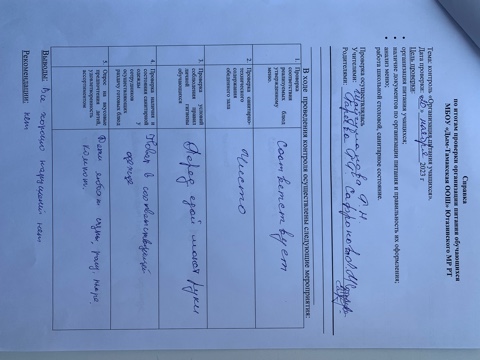 Справка
по итогам проверки организации питания обучающихся
МБОУ «Дым-Тамакская ООШ» Ютазинского МР РТ
Тема: контроль «Организация питания учащихся».
Дата проверки: 2023 г
Цель проверки:
организация питания учащихся;
наличие документов по организации питания и правильность их оформления;
анализ меню;
работа школьной столовой, санитарное состояние.
Проверка осуществлялась
Учителями:
Родителями:
В ходе проведения контроля осуществлены следующие мероприятия:
1. Проверка соответствия реализуемых блюд утвержденному меню.
соответствует
2. Проверка санитарно-технического содержания обеденного зала
чисто
3. Проверка условий соблюдения правил личной гигиены обучающимися
Перед едой моют руки
4. Проверка наличия и состояния санитарной одежды у сотрудников осуществляющих раздачу готовых блюд
Повар в соответствующей
5. Опрос на вкусовые предпочтения детей, удовлетворенность ассортиментом
Дети любят супы,
компот.
Выводы: Все хорошо нарушений нет
Рекомендации: нет